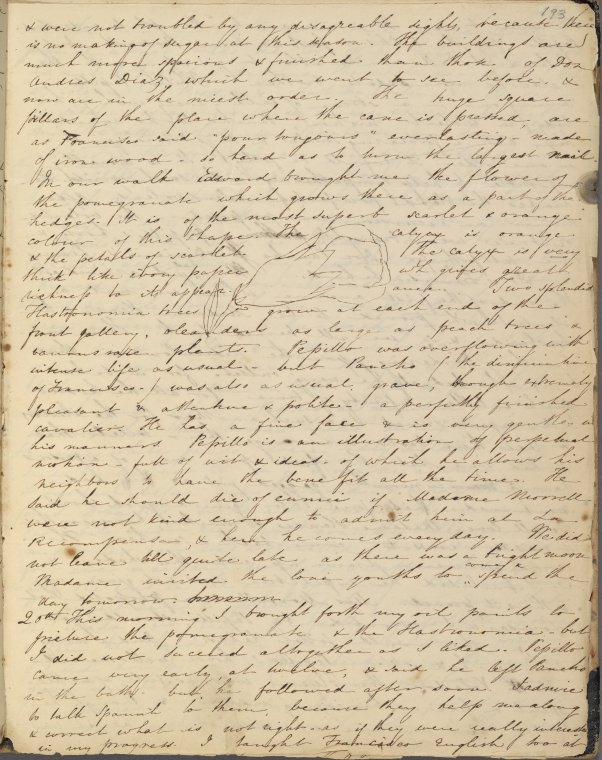 193
& were not troubled by any disagreable sights, because there
is no making of sugar at this season. The buildings are
much more spacious & finished than those of Don
Andres Diaz, which we went to see before. &
now are in the nicest order. The huge square
pillars of the place where the cane is pressed, are
as Francisco said "pour toujours" everlasting - made
of iron wood - so hard as to turn the largest nail.
In our walk Edward brought me the flower of
the pomegranate which grows there as a part of the
hedges. It is of the most superb scarlet & orange
colour of this shape. The calyx is orange
& the petals of scarlet The calyx is very
thick like ebony paper wh gives great
richness to its appearance. Two splendid
Hastronomia trees grow at each end of the
front gallery, oleanders as large as peach trees &
various rare plants. Pepillo was overflowing with
intense life as usual - but Pancho (the diminutive
of Francisco -) was also as usual, grave, though extremely
pleasant & attentive & polite - a perfectly finished
cavalier. He has a fine face & is very gentle in
his manners Pepillo is an illustration of perpetual
motion - full of wit & ideas - of which he allows his
neighbors to have the benefit all the time. He
said he should die of ennui if Madame Morrell
were not kind enough to admit him at La
Recompensa, & here he comes every day. We did
not leave till quite late as there was a bright moon
Madame invited the love youths to come & spend the
day tomorrow.
20th This morning I brought forth my oil paints to
picture the pomegranate & the Hastronomia - but
I did not succeed altogether as I liked. Pepillo
came very early, at twelve, & said he left Pancho
in the bath - but he followed after soon. I admire
to talk Spanish to them, because they help me along
& correct what is not right - as if they were really interested
in my progress. I taught Francisco English too at